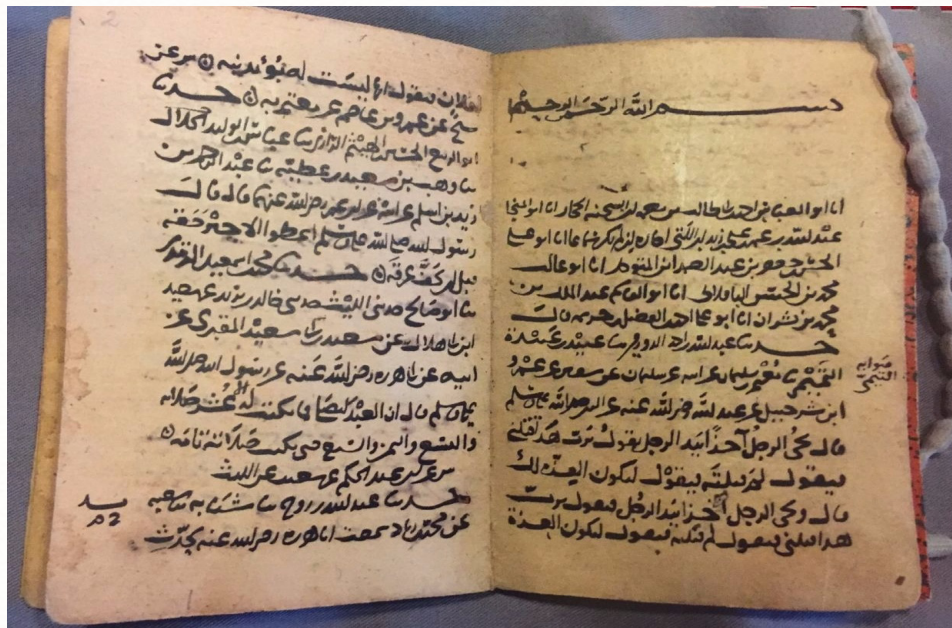 بسم الله الرحمن الرحيم
انا ابو العباس احمد بن ابي طالب بن نعمه بن الشحنه الحجار انا ابو المنجا
عبد الله بن عمر بن علي بن زيد بن اللتي اجازه ان لم يكن سماعا انا ابو علي
الحسن بن جعفر بن عبد الصمد بن المتوكل انا ابو غالب
محمد بن الحسن الباقلاني انا ابو القاسم عبد الملك بن
محمد بن بشران انا ابو علي احمد بن الفضل بن خزيمه قال
حدثنا عبد الله بن روح ثنا عبيد بن عبيدة
التميمي ثنا معتمر بن سليمان عن ابيه عن سليمان عن سفيان عن عمرو
ابن شرحبيل عن عبد الله رضي الله عنه عن النبي صلى الله عليه وسلم
قال يجئ الرجل آخذا بيد الرجل يقول يرب هذا قتلني
فيقول لم قتلته فيقول لتكون العزة لك
قال ويجئ الرجل آخذا بيد الرجل فيقول يرب
هذا قتلني فيقول لم قتلته فيقول لتكون العزة
صوابه
التيمي
2
لفلان فيقول انها ليست له بؤ بذنبه
عن عمرو بن عاصم عن معتمر به حدثنا
الهيثم الرازي ثنا عباس بن الوليد الخلال
ثنا وهب بن سعيد بن عطية ثنا عبد الرحمن بن
زيد بن اسلم عن ابيه عن ابن عمر رضي الله عنهما قال قال
رسول الله صلى الله عليه وسلم اعطوا الاجير حقه
قبل ان يجف عرقه حدثنا محمد بن اسمعيل الترمذي
ثنا ابو صالح حدثني الليث حدثني خالد بن يزيد عن سعيد
ابن ابي هلال عن سعيد بن ابي سعيد المقبري عن
ابيه عن ابي هريره رضي الله عنه عن رسول الله صلى الله
عليه وسلم قال ان العبد ليصلي فما يكتب له الا عشر صلاته
والتسع والثمن والسبع حتى تكتب صلاته تامه
عبد الحكم عن شعيب عن الليث
حدثنا عبد الله بن روح ثنا شبابه ثنا شعبه
عن محمد بن زياد سمعت ابا هريره رضي الله عنه يحدث